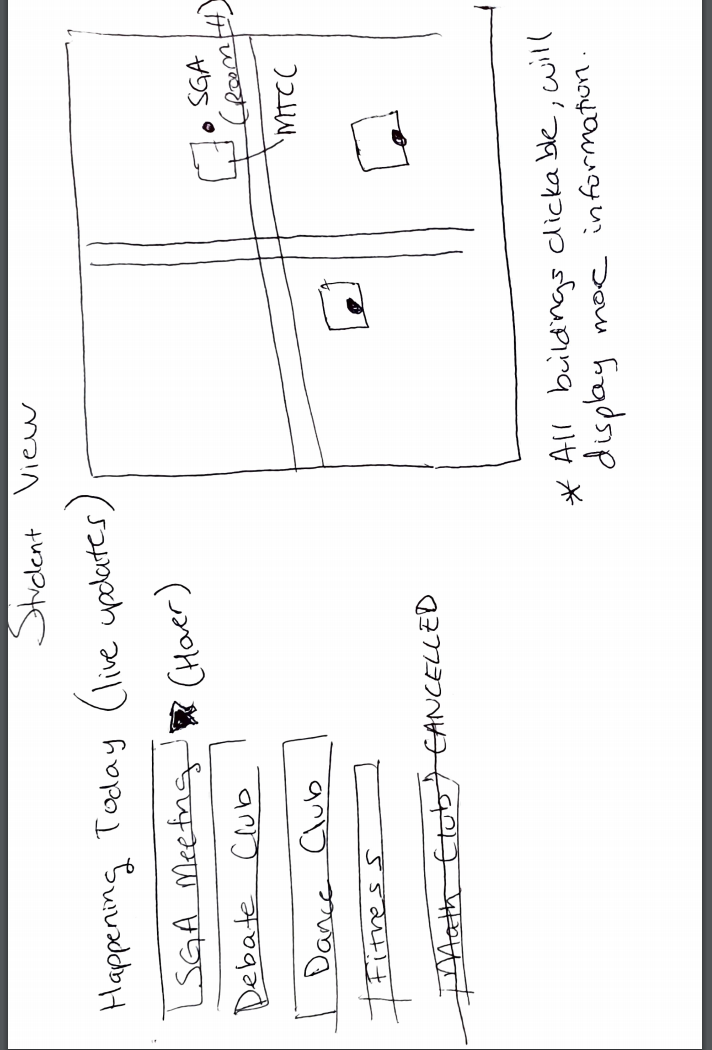 Student View
Happening Today (live updates)
SGA Meeting (Hover)
Debate Club
Dance Club
Fitness
Math Club CANCELLED
SGA
MTCC
* All buildings clickable, will
display more information.